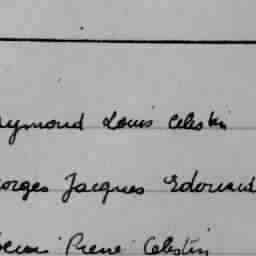 aymond Louis Celestin
orges Jacques Edouard
Pierre Celestin